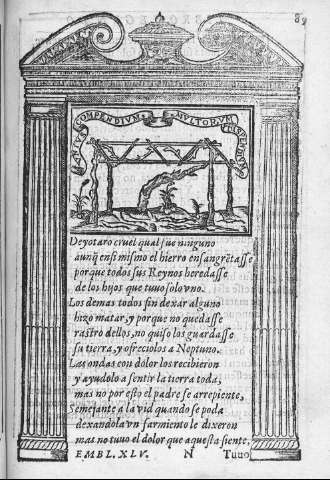 89
COMPENDIVM MVLTORVM
Deyotaro cruel qual fue ninguno
aunq̃ en si mismo el hierro ensangrẽtasse
porque todos sus Reynos heredasse
de los hijos que tuuo solo vno.
Los demas todos sin dexar alguno
hizo matar, y porque no quedasse
rastro dellos, no quiso los guardasse
su tierra, y ofreciolos a Neptuno.
Las ondas con dolor los recibieron
y ayudolo a sentir la tierra toda,
mas no por esto el padre se arrepiente,
Semejante a la vid quando se poda
dexandola vn sarmiento le dixeron
mas no tuuo el dolor que aquesta siente,
EMBL. XLV. N Tuuo